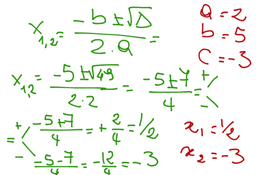 x₁,₂ = (-b ± √Δ) / (2·a) =
a = 2
b = 5
c = -3
x₁,₂ = (-5 ± √49) / (2·2) = (-5 ± 7) / 4 = + -
= + (-5 + 7) / 4 = + 2/4 = 1/2
- = (-5 - 7) / 4 = -12/4 = -3
x₁ = 1/2
x₂ = -3